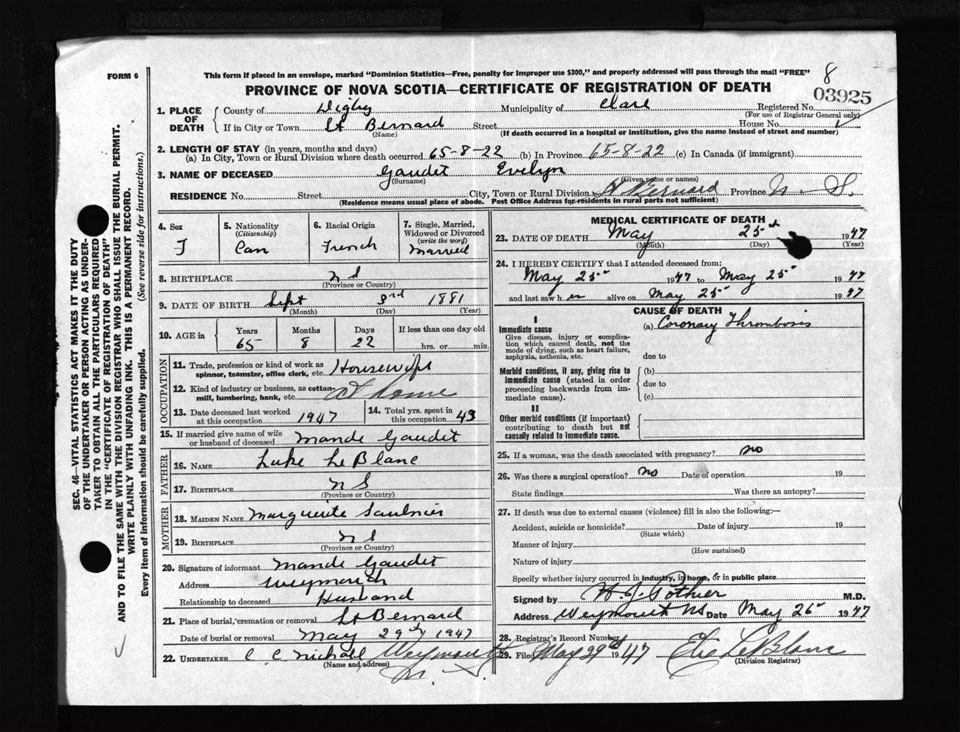 FORM 6
This form if placed in an envelope, marked "Dominion Statistics—Free, penalty for improper use $300," and properly addressed will pass through the mail "FREE"
8
PROVINCE OF NOVA SCOTIA—CERTIFICATE OF REGISTRATION OF DEATH
03925
1. PLACE OF DEATH
County of Digby Municipality of Clare Registered No.
(For use of Registrar General only)
If in City or Town St Bernard Street House No.
(Name) (If death occurred in a hospital or institution, give the name instead of street and number)
2. LENGTH OF STAY (in years, months and days)
(a) In City, Town or Rural Division where death occurred 65-8-22 (b) In Province 65-8-22 (c) In Canada (if immigrant)
3. NAME OF DECEASED Gaudet Evelyn
(Surname) (Given name or names)
RESIDENCE No. Street City, Town or Rural Division St Bernard Province N. S.
(Residence means usual place of abode. Post Office Address for residents in rural parts not sufficient)
4. Sex
F
5. Nationality
(Citizenship)
Can
6. Racial Origin
French
7. Single, Married, Widowed or Divorced
(write the word)
Married
8. BIRTHPLACE N S
(Province or Country)
9. DATE OF BIRTH Sept 3rd 1881
(Month) (Day) (Year)
10. AGE in
Years Months Days If less than one day old
65 8 22 hrs. or min.
OCCUPATION
11. Trade, profession or kind of work as spinner, teamster, office clerk, etc. Housewife
12. Kind of industry or business, as cotton-mill, lumbering, bank, etc. At home
13. Date deceased last worked at this occupation 1947
14. Total yrs. spent in this occupation 43
15. If married give name of wife or husband of deceased Mande Gaudet
FATHER
16. NAME Luke LeBlanc
17. BIRTHPLACE N S
(Province or Country)
MOTHER
18. MAIDEN NAME Marguerite Saulnier
19. BIRTHPLACE N S
(Province or Country)
20. Signature of informant Mande Gaudet
Address Weymouth
Relationship to deceased Husband
21. Place of burial, cremation or removal St Bernard
Date of burial or removal May 29th 1947
22. UNDERTAKER C. C. Nichall Weymouth
(Name and address)
N. S.
MEDICAL CERTIFICATE OF DEATH
23. DATE OF DEATH May 25th 1947
(Month) (Day) (Year)
24. I HEREBY CERTIFY that I attended deceased from:
May 25th 1947 to May 25th 1947
and last saw her alive on May 25th 1947
CAUSE OF DEATH
I
Immediate cause (a) Coronary Thrombosis
Give disease, injury or complication which caused death, not the mode of dying, such as heart failure, asphyxia, asthenia, etc.
due to
Morbid conditions, if any, giving rise to immediate cause (stated in order proceeding backwards from immediate cause).
(b)
due to
(c)
II
Other morbid conditions (if important) contributing to death but not causally related to immediate cause.
25. If a woman, was the death associated with pregnancy? no
26. Was there a surgical operation? no Date of operation 19
State findings Was there an autopsy?
27. If death was due to external causes (violence) fill in also the following:—
Accident, suicide or homicide? Date of injury 19
(State which)
Manner of injury
(How sustained)
Nature of injury
Specify whether injury occurred in industry, in home, or in public place
Signed by H. J. Pothier M.D.
Address Weymouth NS Date May 26th 1947
28. Registrar's Record Number
29. Filed May 29th 1947 LeBlanc
(Division Registrar)
SEC. 46—VITAL STATISTICS ACT MAKES IT THE DUTY
OF THE UNDERTAKER OR PERSON ACTING AS UNDER-
TAKER TO OBTAIN ALL THE PARTICULARS REQUIRED
IN THE "CERTIFICATE OF REGISTRATION OF DEATH"
AND TO FILE THE SAME WITH THE DIVISION REGISTRAR WHO SHALL ISSUE THE BURIAL PERMIT.
WRITE PLAINLY WITH UNFADING INK. THIS IS A PERMANENT RECORD.
Every item of information should be carefully supplied. (See reverse side for instructions.)